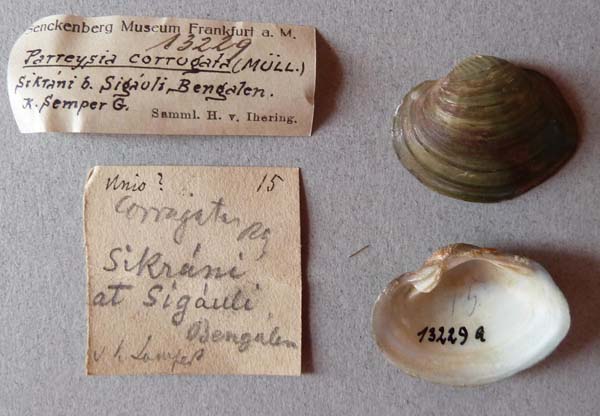 Senckenberg Museum Frankfurt a. M.
13229
Parreysia corrugata (MÜLL.)
Sikráni b. Sigáuli, Bengalen.
K. Semper G.
Samml. H. v. Ihering.
Unio? 15
Sikráni
at Sigáuli
Bengalen
15.
13229 a